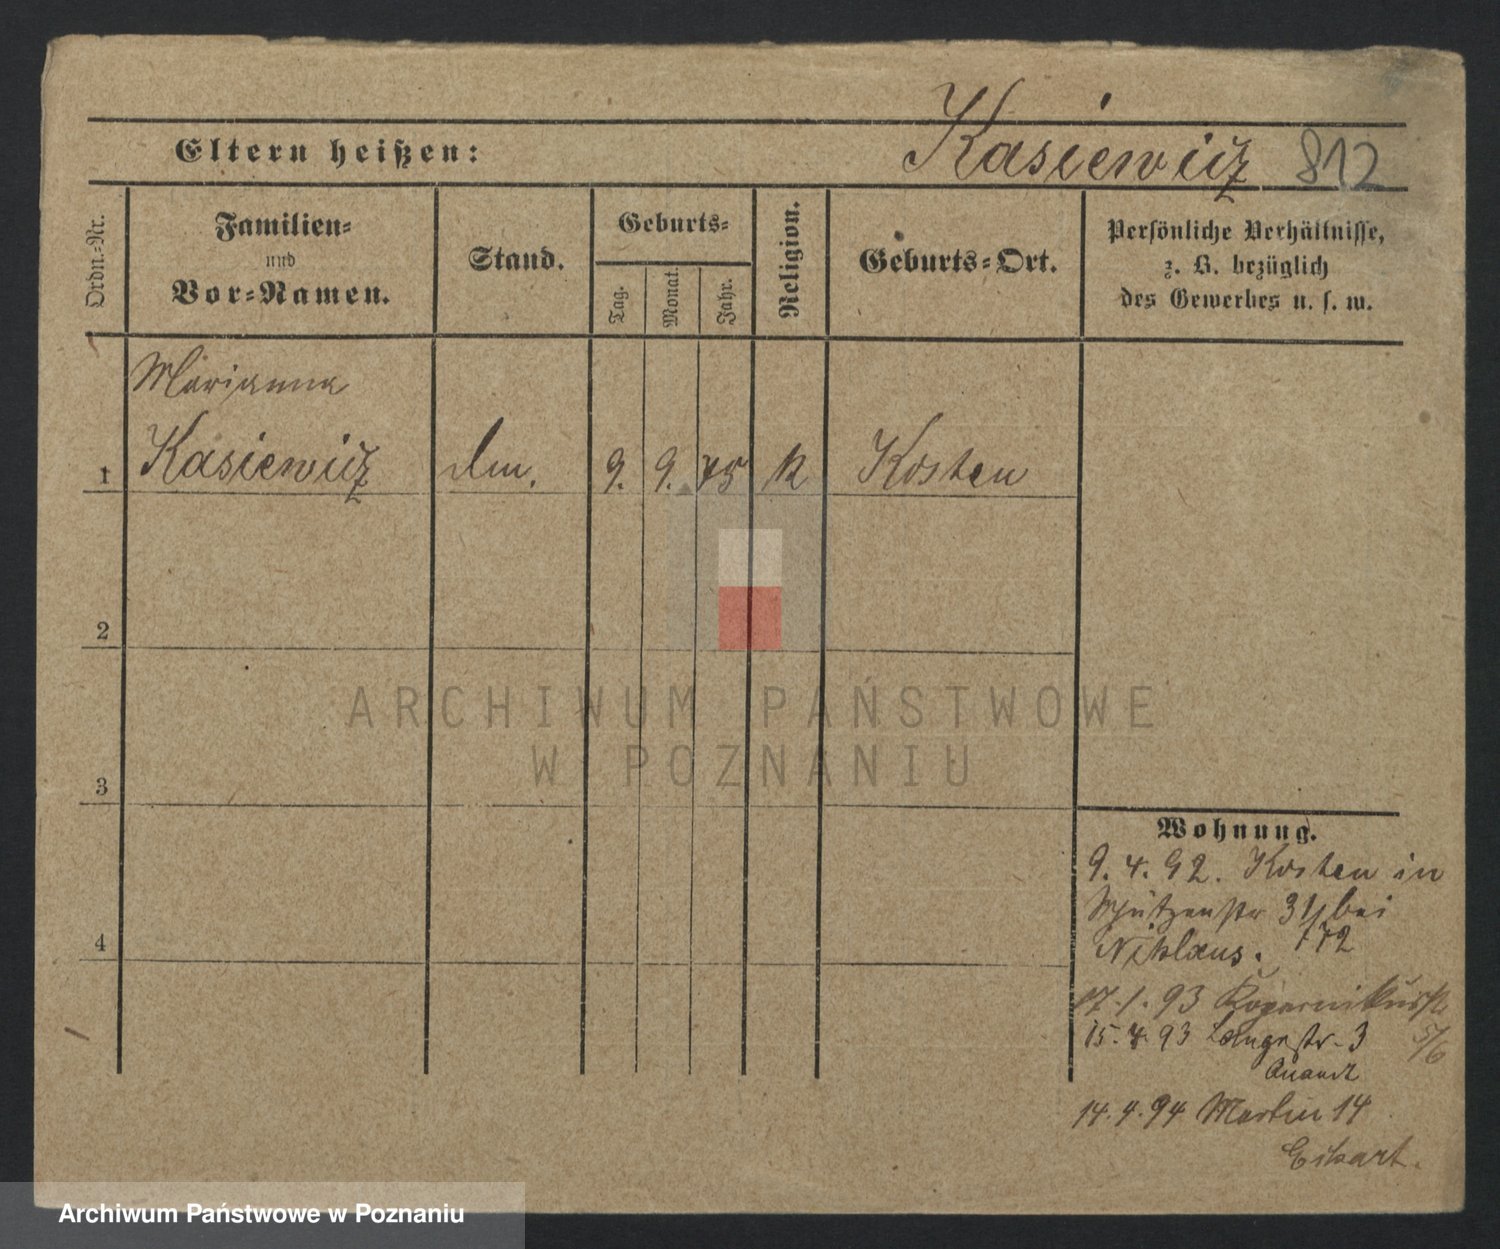 Kasiewicz 812
Eltern heißen:
Ordn.-Nr.
Familien-
und
Vor-Namen.
Stand.
Geburts-
Tag.
Monat.
Jahr.
Religion.
Geburts-Ort.
Persönliche Verhältnisse,
z. B. bezüglich
des Gewerbes u. s. w.
Marianna
1 Kasiewicz dm. 9. 9. 75 k Kosten
2
3
4
Wohnung.
9. 4. 92. Kosten in
Schützenstr 31 bei
Niklaus. 172
17. 1. 93 Kopernikusstr
5/6
15. 4. 93 Langestr. 3
Quandt
14. 4. 94 Martin 14
Eikart.
ARCHIWUM PAŃSTWOWE
W POZNANIU
Archiwum Państwowe w Poznaniu